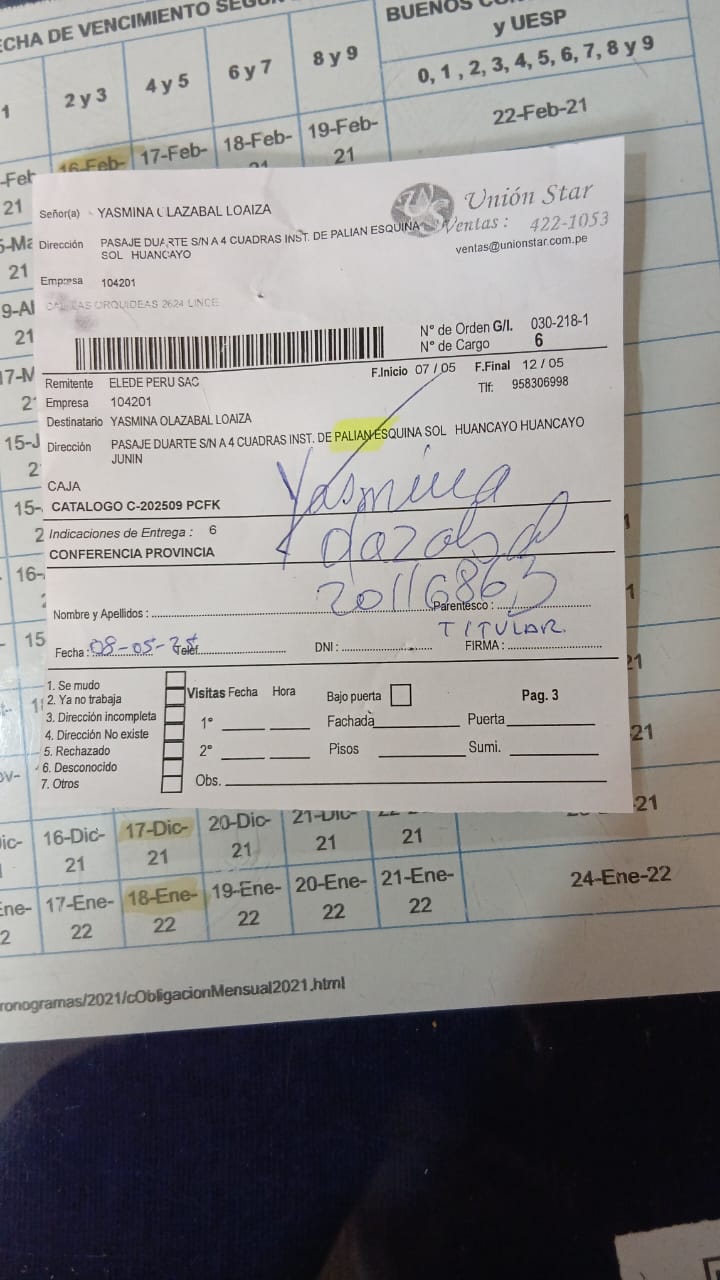 ECHA DE VENCIMIENTO SEGÚ
BUENOS
y UESP
2 y 3
4 y 5
6 y 7
8 y 9
0, 1 , 2, 3, 4, 5, 6, 7, 8 y 9
16-Feb-
17-Feb-
18-Feb-
19-Feb-
21
22-Feb-21
Unión Star
Ventas : 422-1053
ventas@unionstar.com.pe
Señor(a) YASMINA OLAZABAL LOAIZA
Dirección PASAJE DUARTE S/N A 4 CUADRAS INST. DE PALIAN ESQUINA
SOL HUANCAYO
Empresa 104201
ORQUIDEAS 2624 LINCE
N° de Orden G/I. 030-218-1
N° de Cargo 6
F.Inicio 07 / 05 F.Final 12 / 05
Tlf: 958306998
Remitente ELEDE PERU SAC
Empresa 104201
Destinatario YASMINA OLAZABAL LOAIZA
Dirección PASAJE DUARTE S/N A 4 CUADRAS INST. DE PALIAN ESQUINA SOL HUANCAYO HUANCAYO
JUNIN
CAJA
CATALOGO C-202509 PCFK
Indicaciones de Entrega : 6
CONFERENCIA PROVINCIA
Yasmina
20116863
Nombre y Apellidos :
Parentesco :
TITULAR.
Fecha : 08-05-25
Teléf.
DNI :
FIRMA :
1. Se mudo
2. Ya no trabaja
3. Dirección incompleta
4. Dirección No existe
5. Rechazado
6. Desconocido
7. Otros
Visitas Fecha Hora
1°
2°
Obs.
Bajo puerta
Pag. 3
Fachada
Puerta
Pisos
Sumi.
16-Dic-
21
17-Dic-
21
20-Dic-
21
21-Dic-
21
21
17-Ene-
22
18-Ene-
22
19-Ene-
22
20-Ene-
22
21-Ene-
22
24-Ene-22
ronogramas/2021/cObligacionMensual2021.html